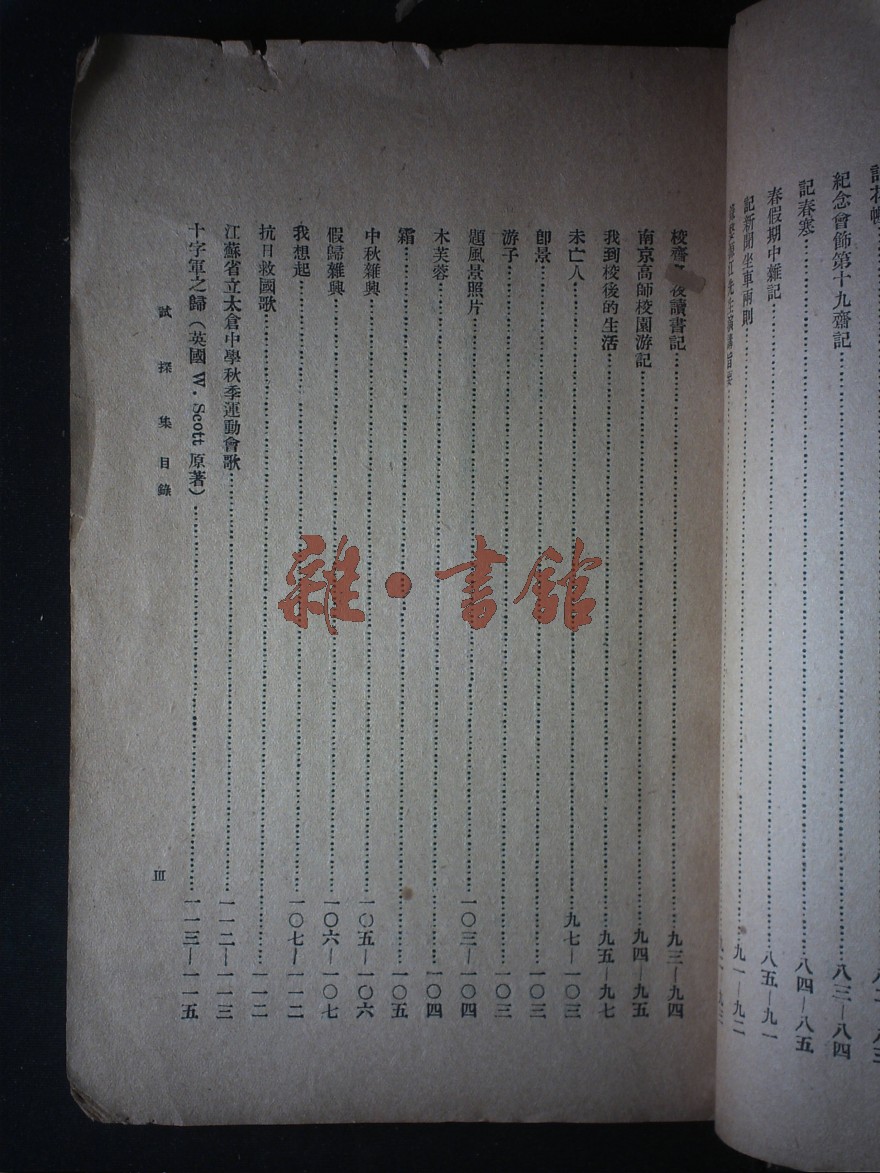 紀念會飾第十九齋記……八三—八四
記春寒……八四—八五
春假期中雜記……八五—九一
記新聞坐車兩則……九一—九二
校齋 後讀書記……九三—九四
南京高師校園游記……九四—九五
我到校後的生活……九五—九七
未亡人……九七—一〇三
卽景……一〇三
游子……一〇三
題風景照片……一〇三—一〇四
木芙蓉……一〇四
霜……一〇五
中秋雜興……一〇五—一〇六
假歸雜興……一〇六—一〇七
我想起……一〇七—一一二
抗日救國歌……一一二
江蘇省立太倉中學秋季運動會歌……一一二—一一三
十字軍之歸(英國 W. Scott 原著)……一一三—一一五
試探集目錄
III
雜·書館